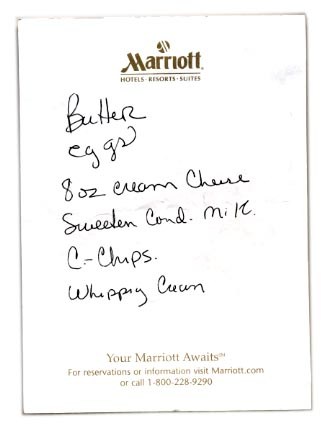 Marriott
HOTELS · RESORTS · SUITES
Butter
eggs
8 oz cream Cheese
Sweeten Cond. Milk.
C-Chips.
Whipping Cream
Your Marriott Awaits℠
For reservations or information visit Marriott.com
or call 1-800-228-9290